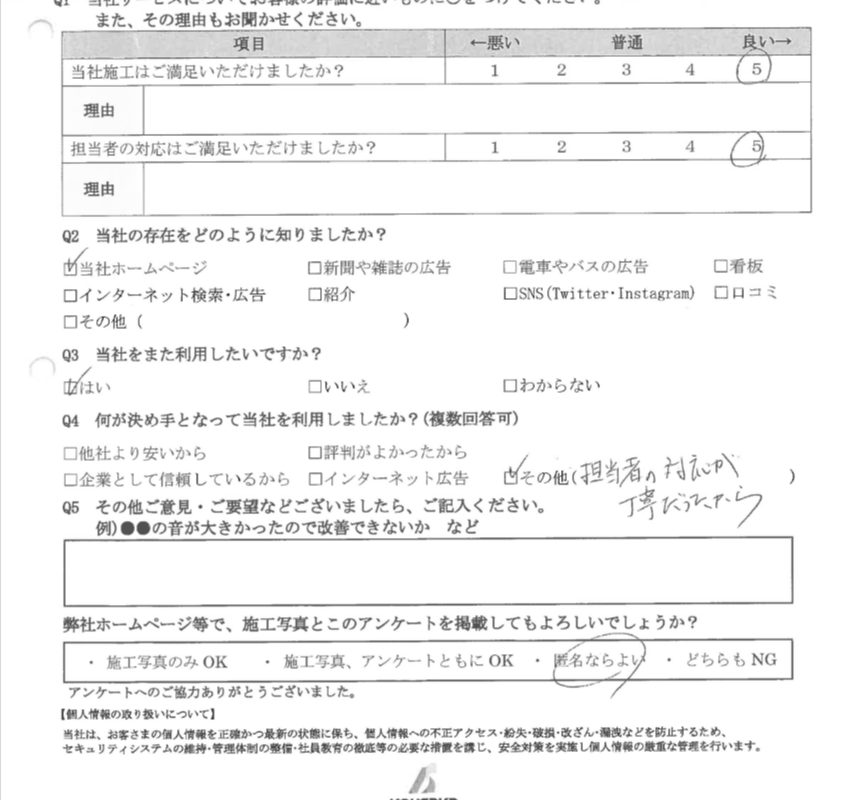 Q1 当社サービスについてお客様の評価に近いものに○をつけてください。
また、その理由もお聞かせください。
項目 ←悪い 普通 良い→
当社施工はご満足いただけましたか? 1 2 3 4 5
理由
担当者の対応はご満足いただけましたか? 1 2 3 4 5
理由
Q2 当社の存在をどのように知りましたか?
☑当社ホームページ □新聞や雑誌の広告 □電車やバスの広告 □看板
□インターネット検索・広告 □紹介 □SNS(Twitter・Instagram) □口コミ
□その他 ( )
Q3 当社をまた利用したいですか?
☑はい □いいえ □わからない
Q4 何が決め手となって当社を利用しましたか?(複数回答可)
□他社より安いから □評判がよかったから
□企業として信頼しているから □インターネット広告 ☑その他(担当者の対応が
丁寧だったから)
Q5 その他ご意見・ご要望などございましたら、ご記入ください。
例)●●の音が大きかったので改善できないか など
弊社ホームページ等で、施工写真とこのアンケートを掲載してもよろしいでしょうか?
・ 施工写真のみ OK ・ 施工写真、アンケートともに OK ・ 匿名ならよい ・ どちらも NG
アンケートへのご協力ありがとうございました。
【個人情報の取り扱いについて】
当社は、お客さまの個人情報を正確かつ最新の状態に保ち、個人情報への不正アクセス・紛失・破損・改ざん・漏洩などを防止するため、
セキュリティシステムの維持・管理体制の整備・社員教育の徹底等の必要な措置を講じ、安全対策を実施し個人情報の厳重な管理を行います。